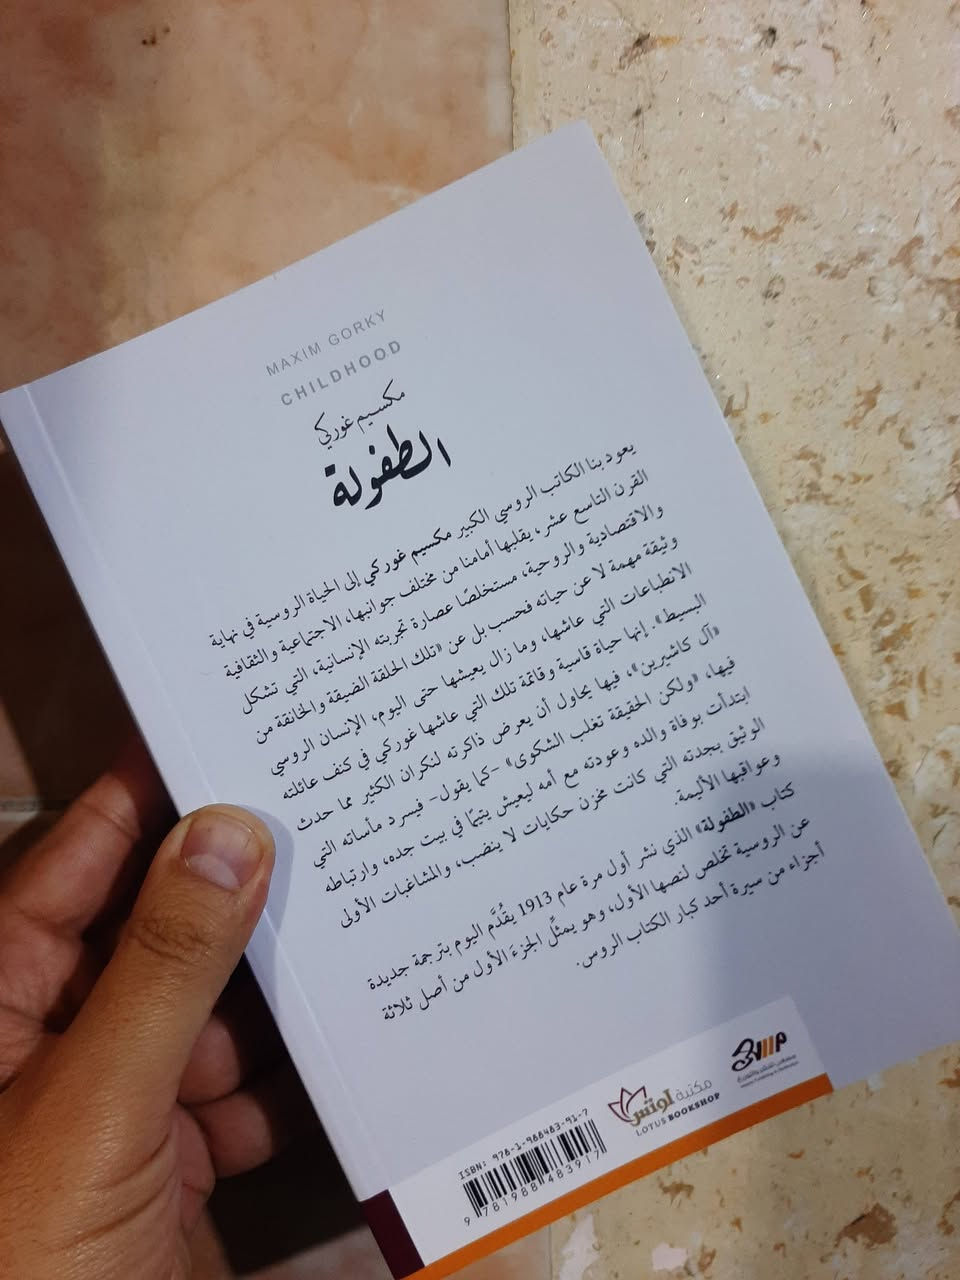 MAXIM GORKY
CHILDHOOD
مكسيم غوركي
الطفولة
يعود بنا الكاتب الروسي الكبير مكسيم غوركي إلى الحياة الروسية في نهاية
القرن التاسع عشر، يقلبها أمامنا من مختلف جوانبها، الاجتماعية والثقافية
والاقتصادية والروحية، مستخلصًا عصارة تجربته الإنسانية، التي تشكل
وثيقة مهمة لا عن حياته فحسب بل عن «تلك الحلقة الضيقة والخانقة من
الانطباعات التي عاشها، وما زال يعيشها حتى اليوم، الإنسان الروسي
البسيط». إنها حياة قاسية وقاتمة تلك التي عاشها غوركي في كنف عائلته
«آل كاشيرين»، فيها يحاول أن يعرض ذاكرته لنكران الكثير مما حدث
فيها، «ولكن الحقيقة تغلب الشكوى» -كما يقول- فيسرد مأساته التي
ابتدأت بوفاة والده وعودته مع أمه ليعيش يتيمًا في بيت جده، وارتباطه
الوثيق بجدته التي كانت مخزن حكايات لا ينضب، والمشاغبات الأولى
وعواقبها الأليمة.
كتاب «الطفولة» الذي نشر أول مرة عام 1913 يُقدَّم اليوم بترجمة جديدة
عن الروسية تخلص لنصها الأول، وهو يمثِّل الجزءَ الأول من أصل ثلاثة
أجزاء من سيرة أحد كبار الكتاب الروس.
ISBN: 978-1-988483-91-7
9 781988 483917
مكتبة لوتس
LOTUS BOOKSHOP
مسعى
مسعى للنشر والتوزيع